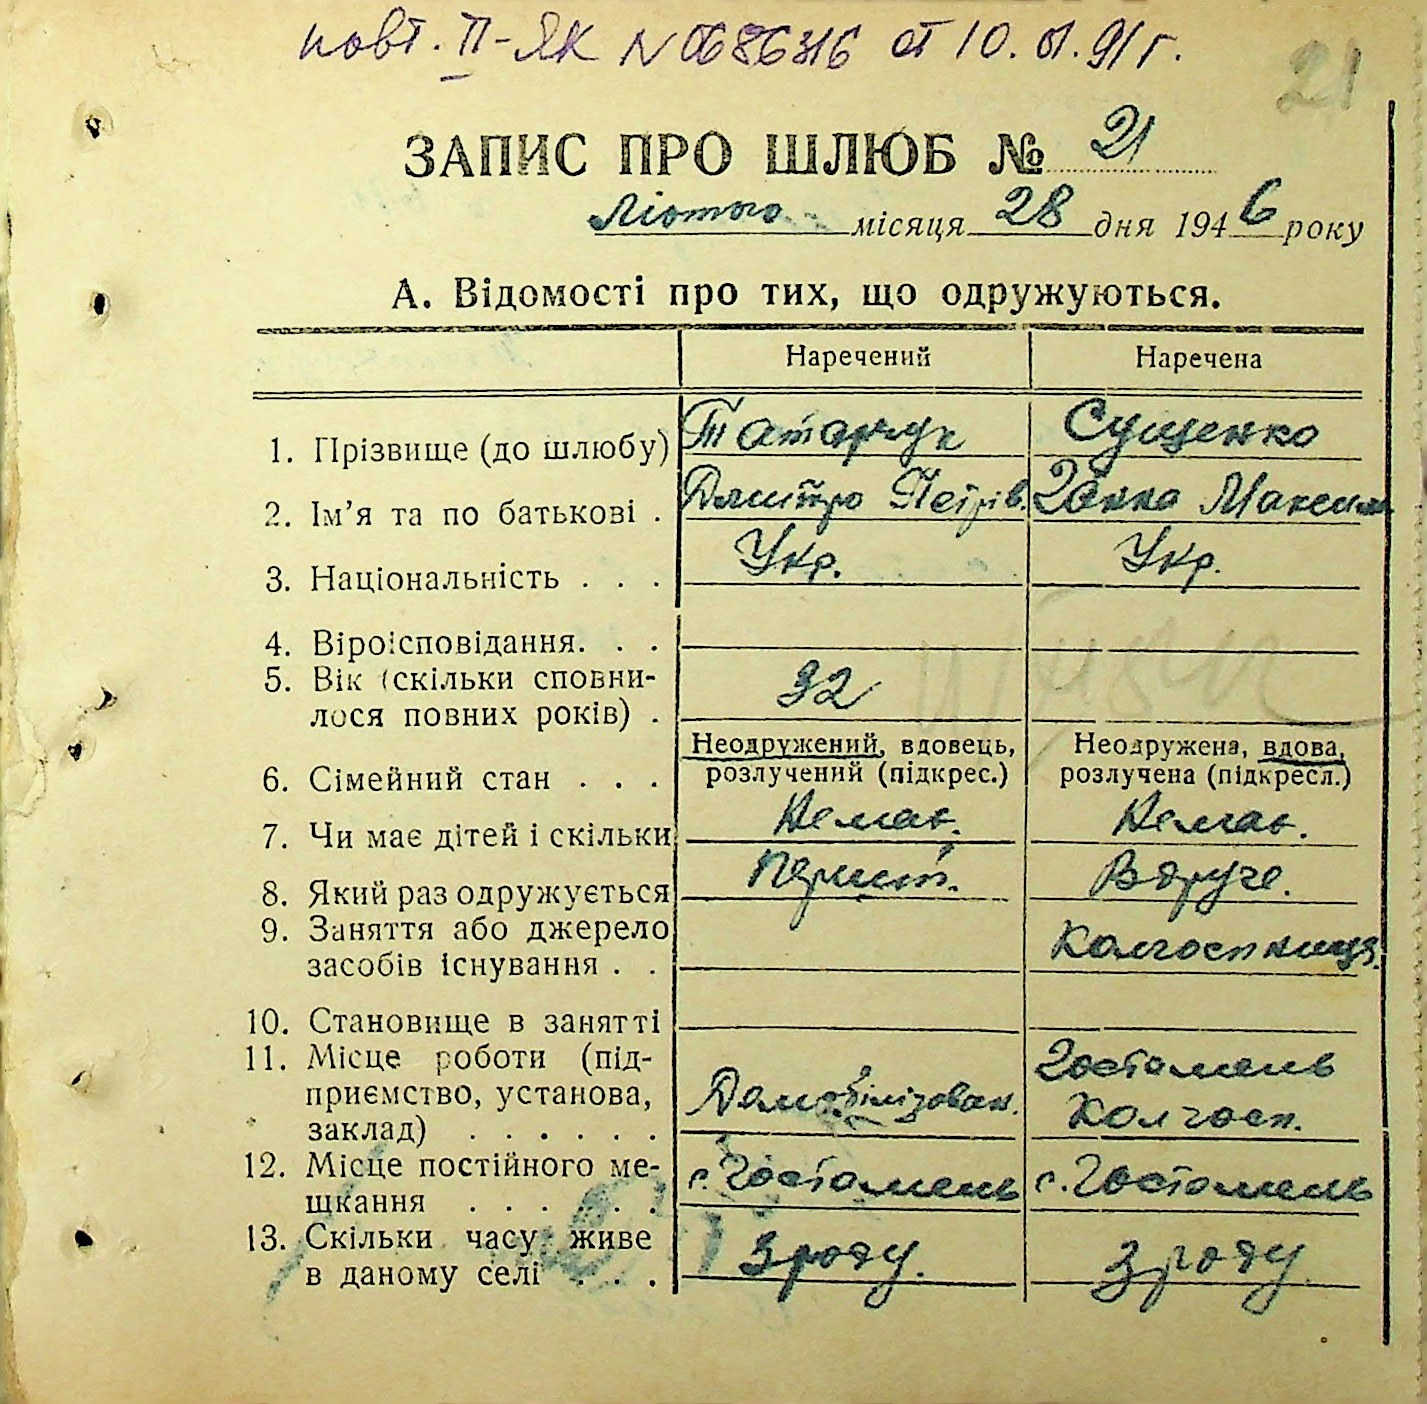 повт. II-ЯК № 068636 от 10.01.91г.
21
ЗАПИС ПРО ШЛЮБ № 21
Лютого місяця 28 дня 1946 року
А. Відомості про тих, що одружуються.
Наречений Наречена
1. Прізвище (до шлюбу) Татарчук Сущенко
2. Ім'я та по батькові . Дмитро Петрів. Ганна Максим
3. Національність . . . Укр. Укр.
4. Віроісповідання. . .
5. Вік (скільки сповни-
лося повних років) . 32
6. Сімейний стан . . . Неодружений, вдовець, розлучений (підкрес.) Неодружена, вдова, розлучена (підкресл.)
7. Чи має дітей і скільки Немає. Немає.
8. Який раз одружується Перший. Вдруге.
9. Заняття або джерело
засобів існування . . Колгоспниця.
10. Становище в занятті
11. Місце роботи (під- Гостомель
приємство, установа, Демобілізован. Колгосп.
заклад) . . . . . .
12. Місце постійного ме-
шкання . . . . . . с. Гостомель с. Гостомель
13. Скільки часу живе
в даному селі . . . З роду. З роду